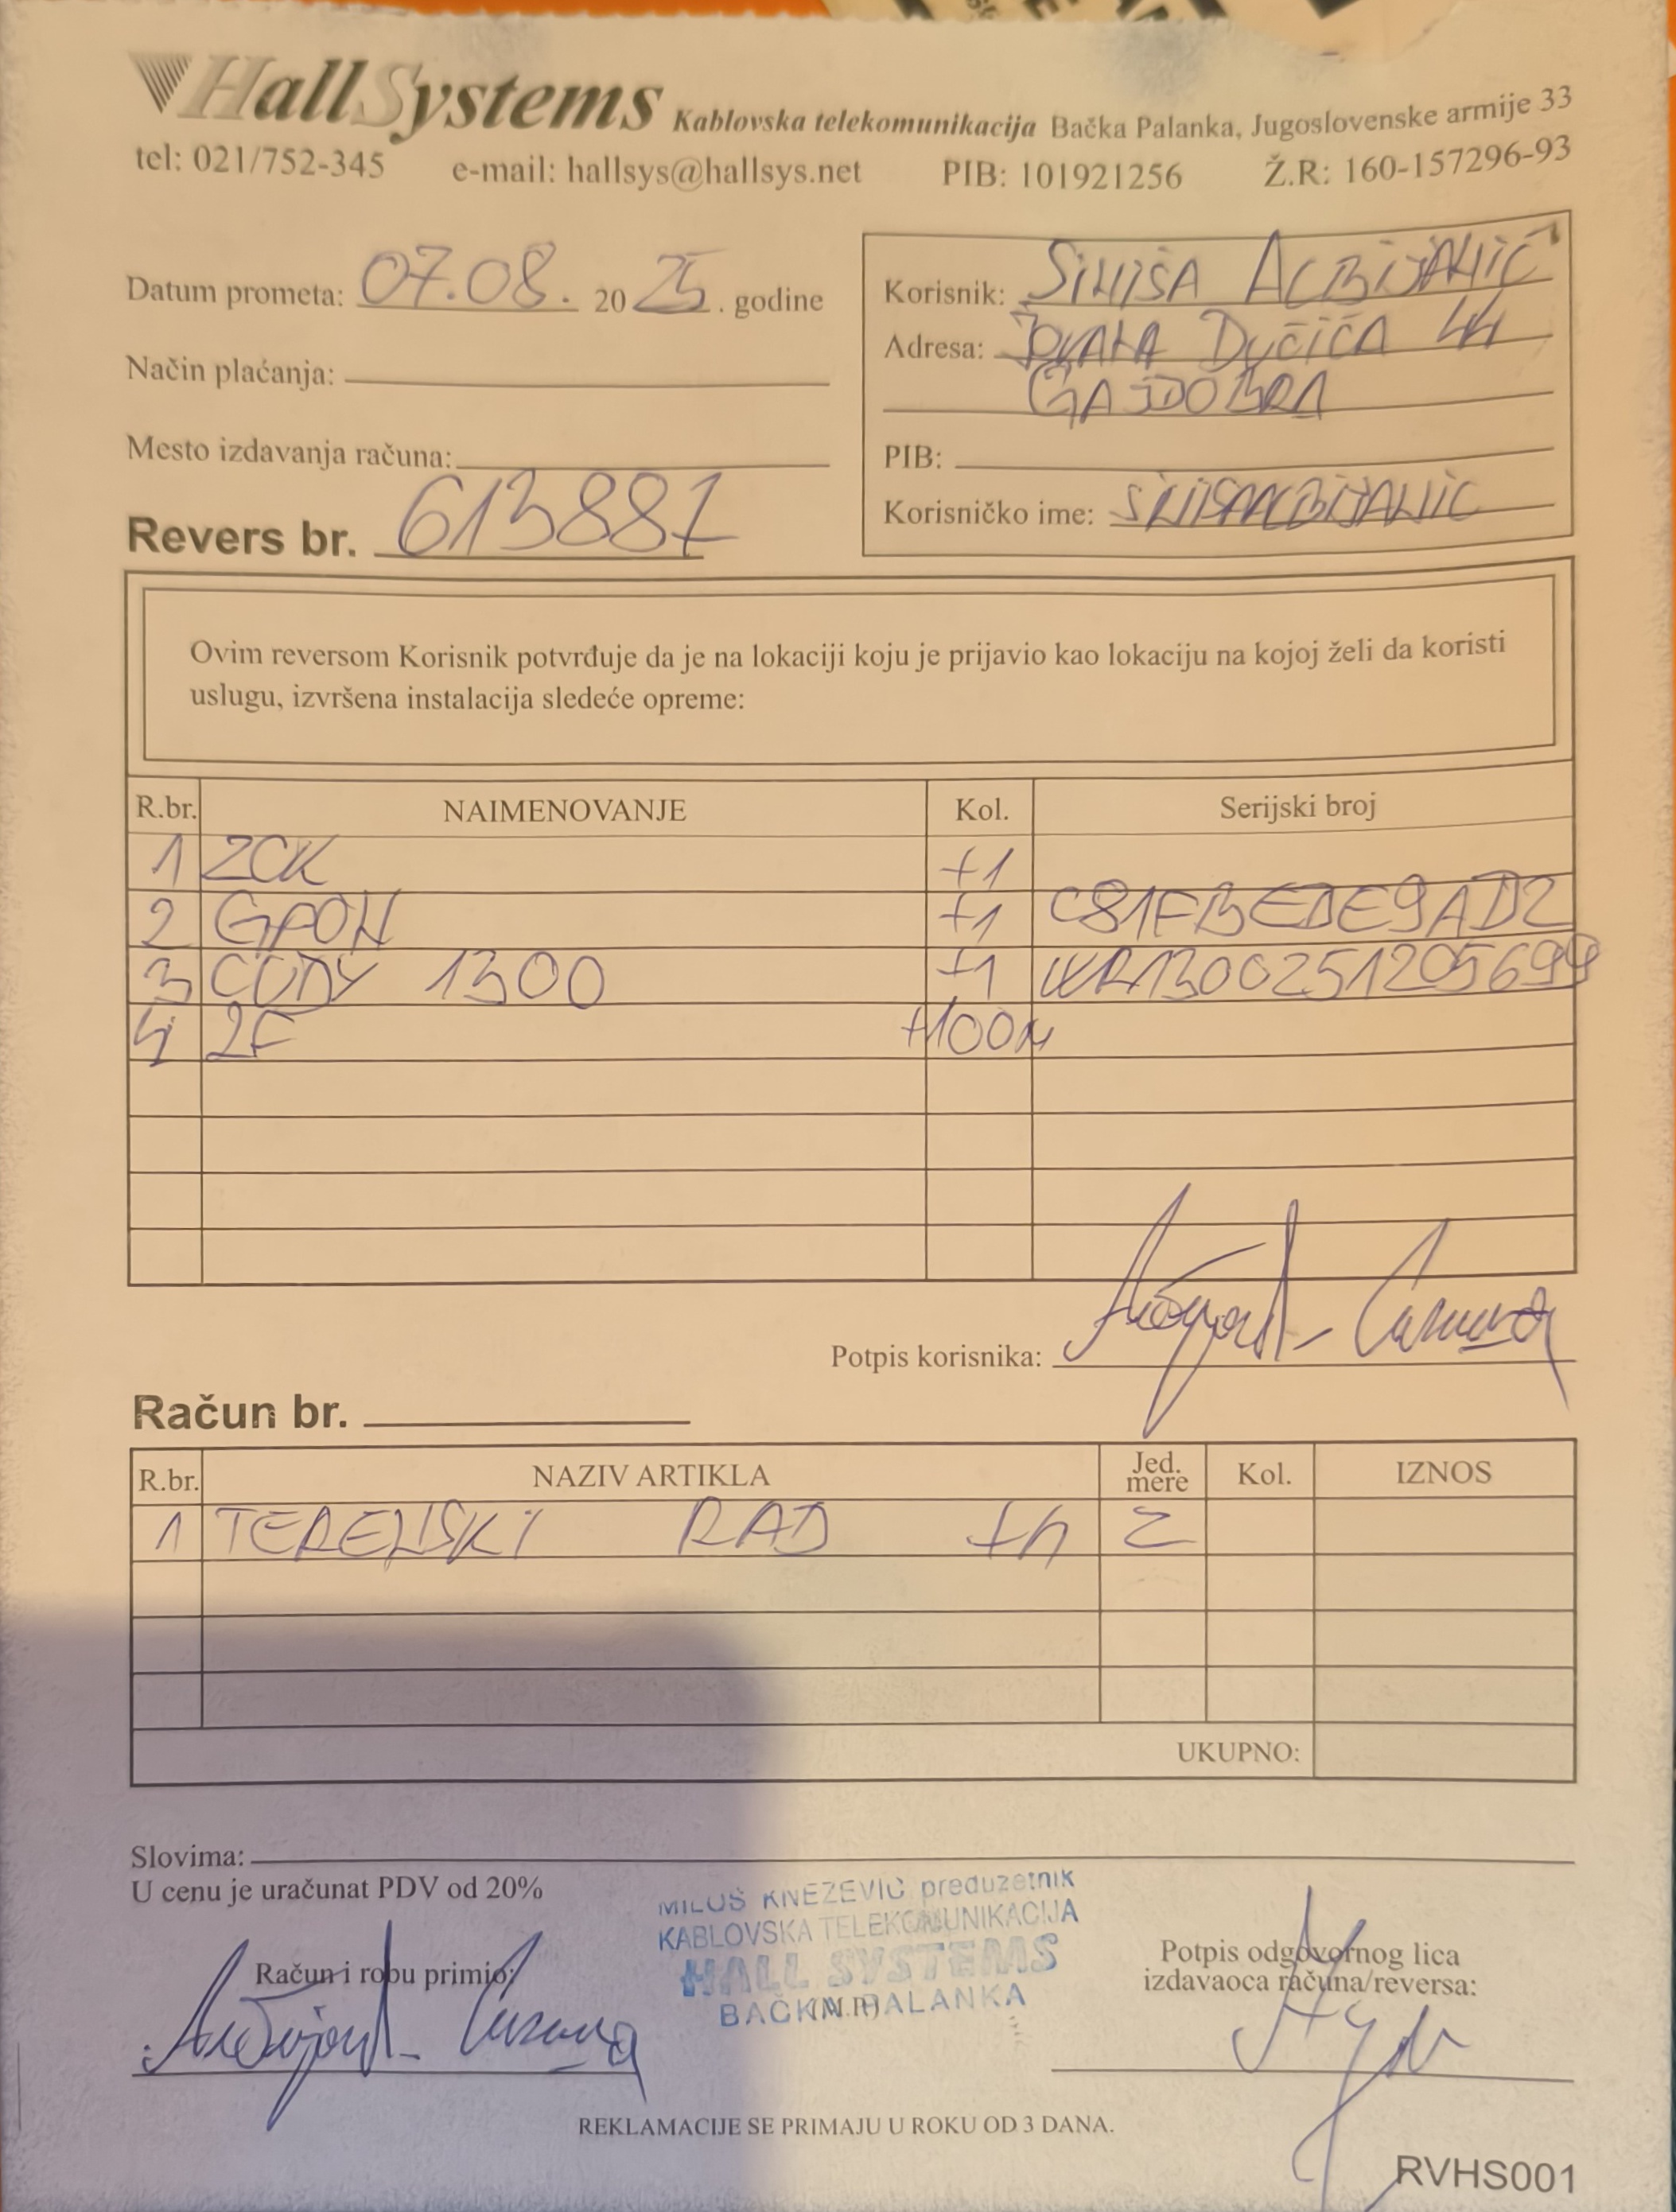 HallSystems Kablovska telekomunikacija Bačka Palanka, Jugoslovenske armije 33
tel: 021/752-345 e-mail: hallsys@hallsys.net PIB: 101921256 Ž.R: 160-157296-93
Datum prometa: 07.08. 2025. godine
Način plaćanja:
Mesto izdavanja računa:
Revers br. 613887
Korisnik: SINIŠA ACBIJANIĆ
Adresa: JOVANA DUČIĆA 44
GAJDOBRA
PIB:
Korisničko ime: SINISAACBIJANIC
Ovim reversom Korisnik potvrđuje da je na lokaciji koju je prijavio kao lokaciju na kojoj želi da koristi
uslugu, izvršena instalacija sledeće opreme:
R.br. NAIMENOVANJE Kol. Serijski broj
1 ZCK +1
2 GPON +1 C81FBEDE9AD2
3 CUDY 1300 +1 WR1300251205699
4 2F +100M
Potpis korisnika:
Račun br.
R.br. NAZIV ARTIKLA Jed. mere Kol. IZNOS
1 TERENSKI RAD +h 2
UKUPNO:
Slovima:
U cenu je uračunat PDV od 20%
MILOŠ KNEŽEVIĆ preduzetnik
KABLOVSKA TELEKOMUNIKACIJA
HALL SYSTEMS
BAČKA PALANKA
(M.P.)
Račun i robu primio:
Potpis odgovornog lica
izdavaoca računa/reversa:
REKLAMACIJE SE PRIMAJU U ROKU OD 3 DANA.
RVHS001